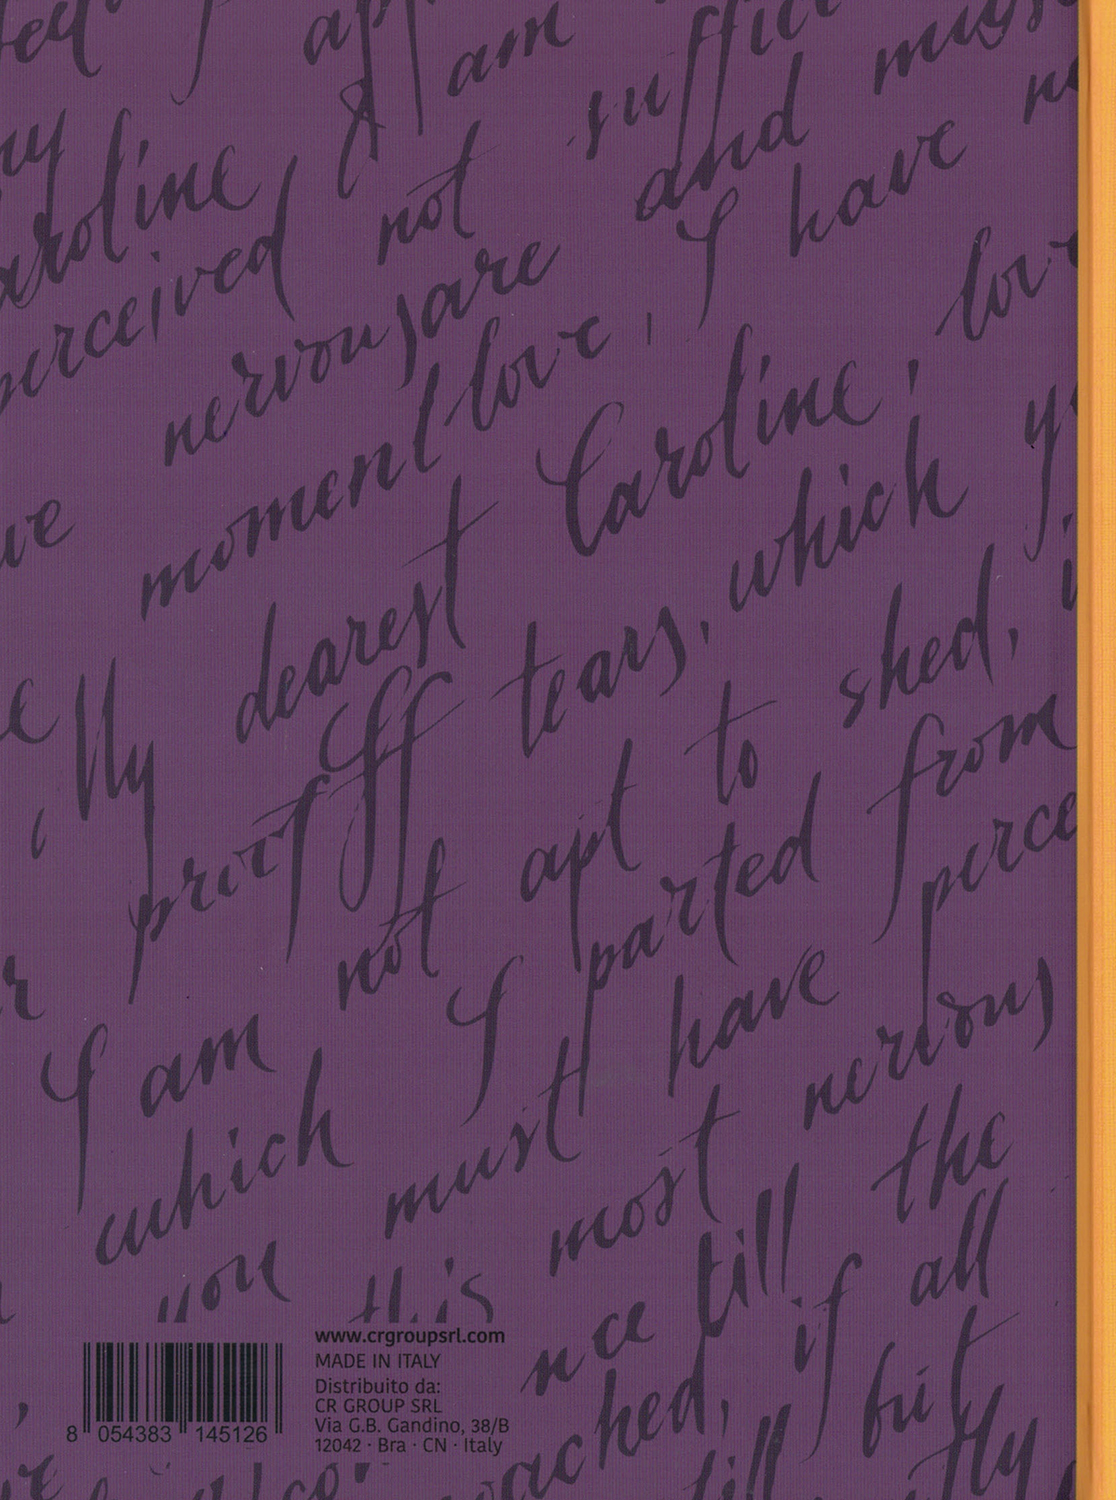 I am suffici
my and mus
Caroline not I have no
perceived nervous are lov
moment love, Caroline,
dearest which
My tears, shed,
proof to from
apt perce
not parted
I am I have nervous
which must the
you this most till all
nce if
ched, but
www.crgroupsrl.com
MADE IN ITALY
Distribuito da:
CR GROUP SRL
Via G.B. Gandino, 38/B
12042 · Bra · CN · Italy
8 054383 145126